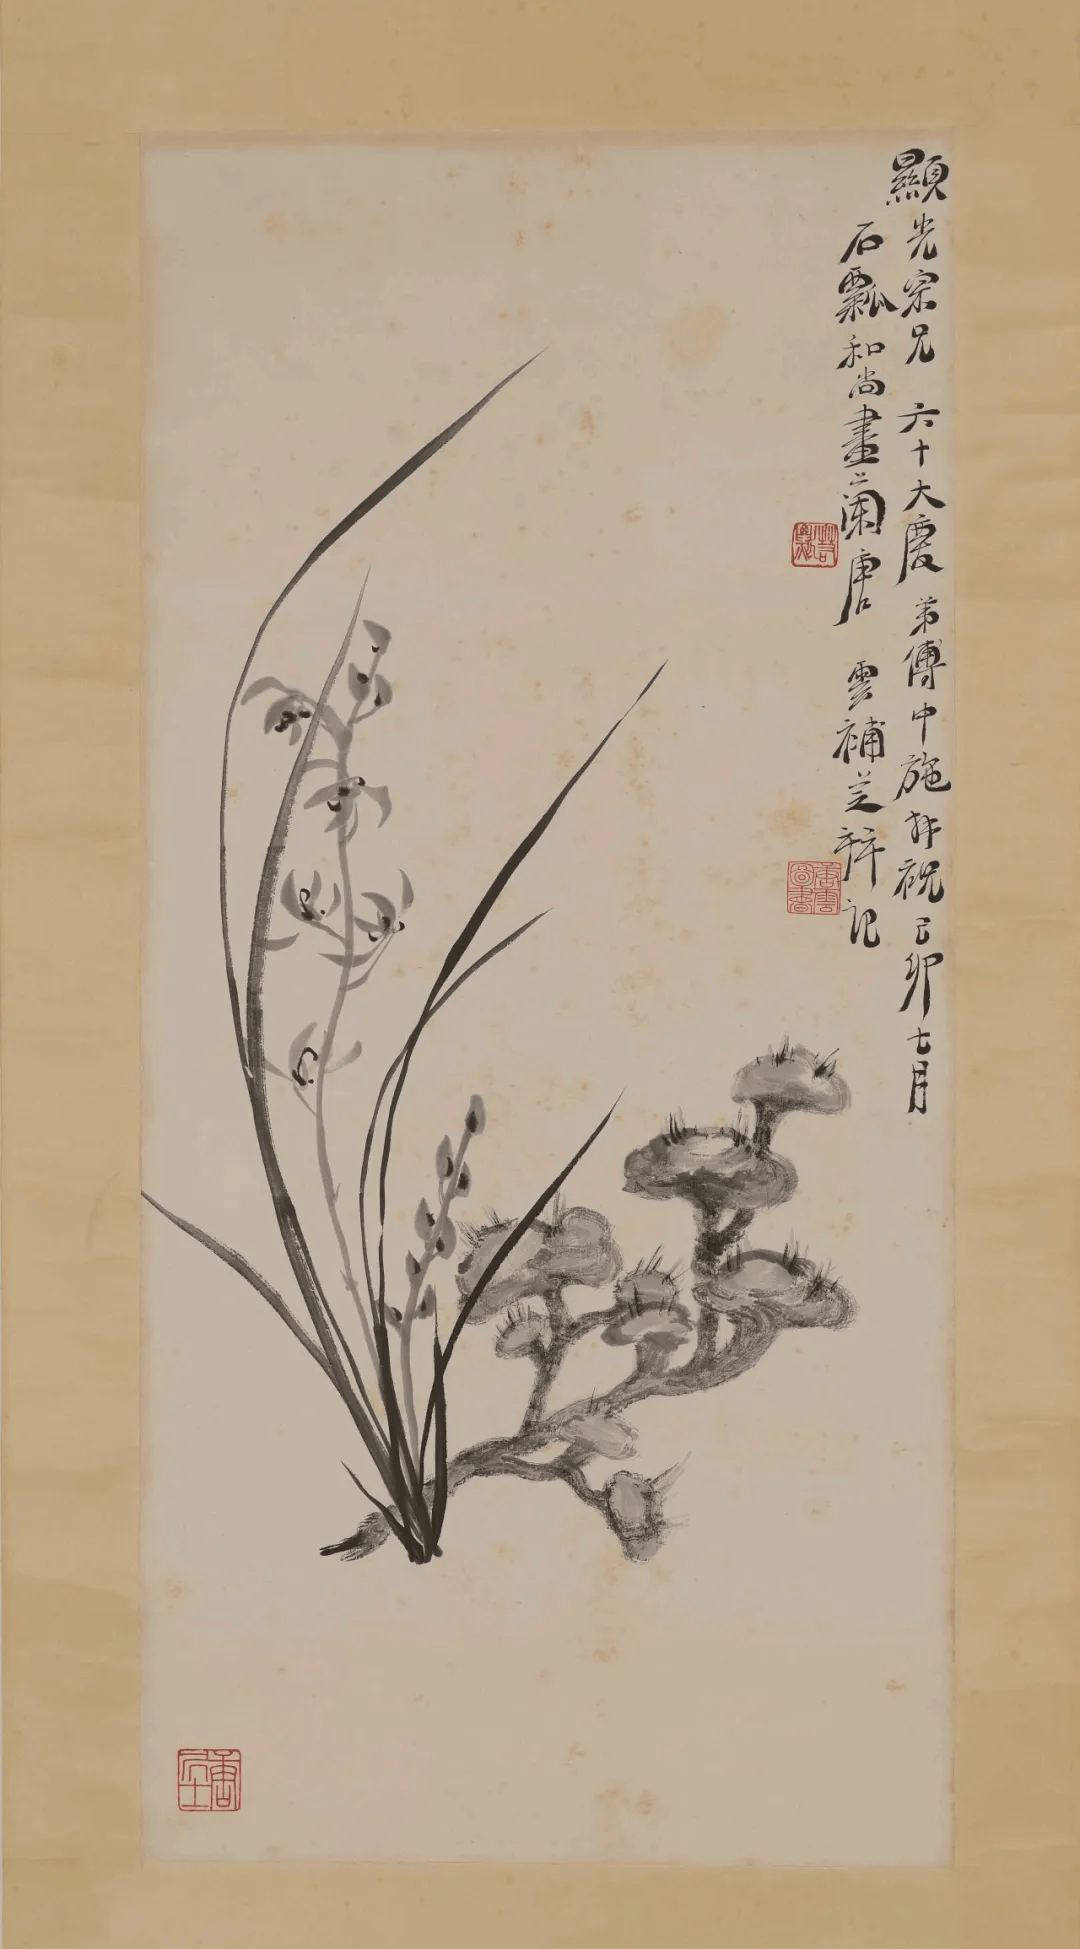 顯光宗兄 六十大慶 弟傅中施拜祝 己卯七月
石瓢和尚畫蘭唐 雲補芝并記
唐雲